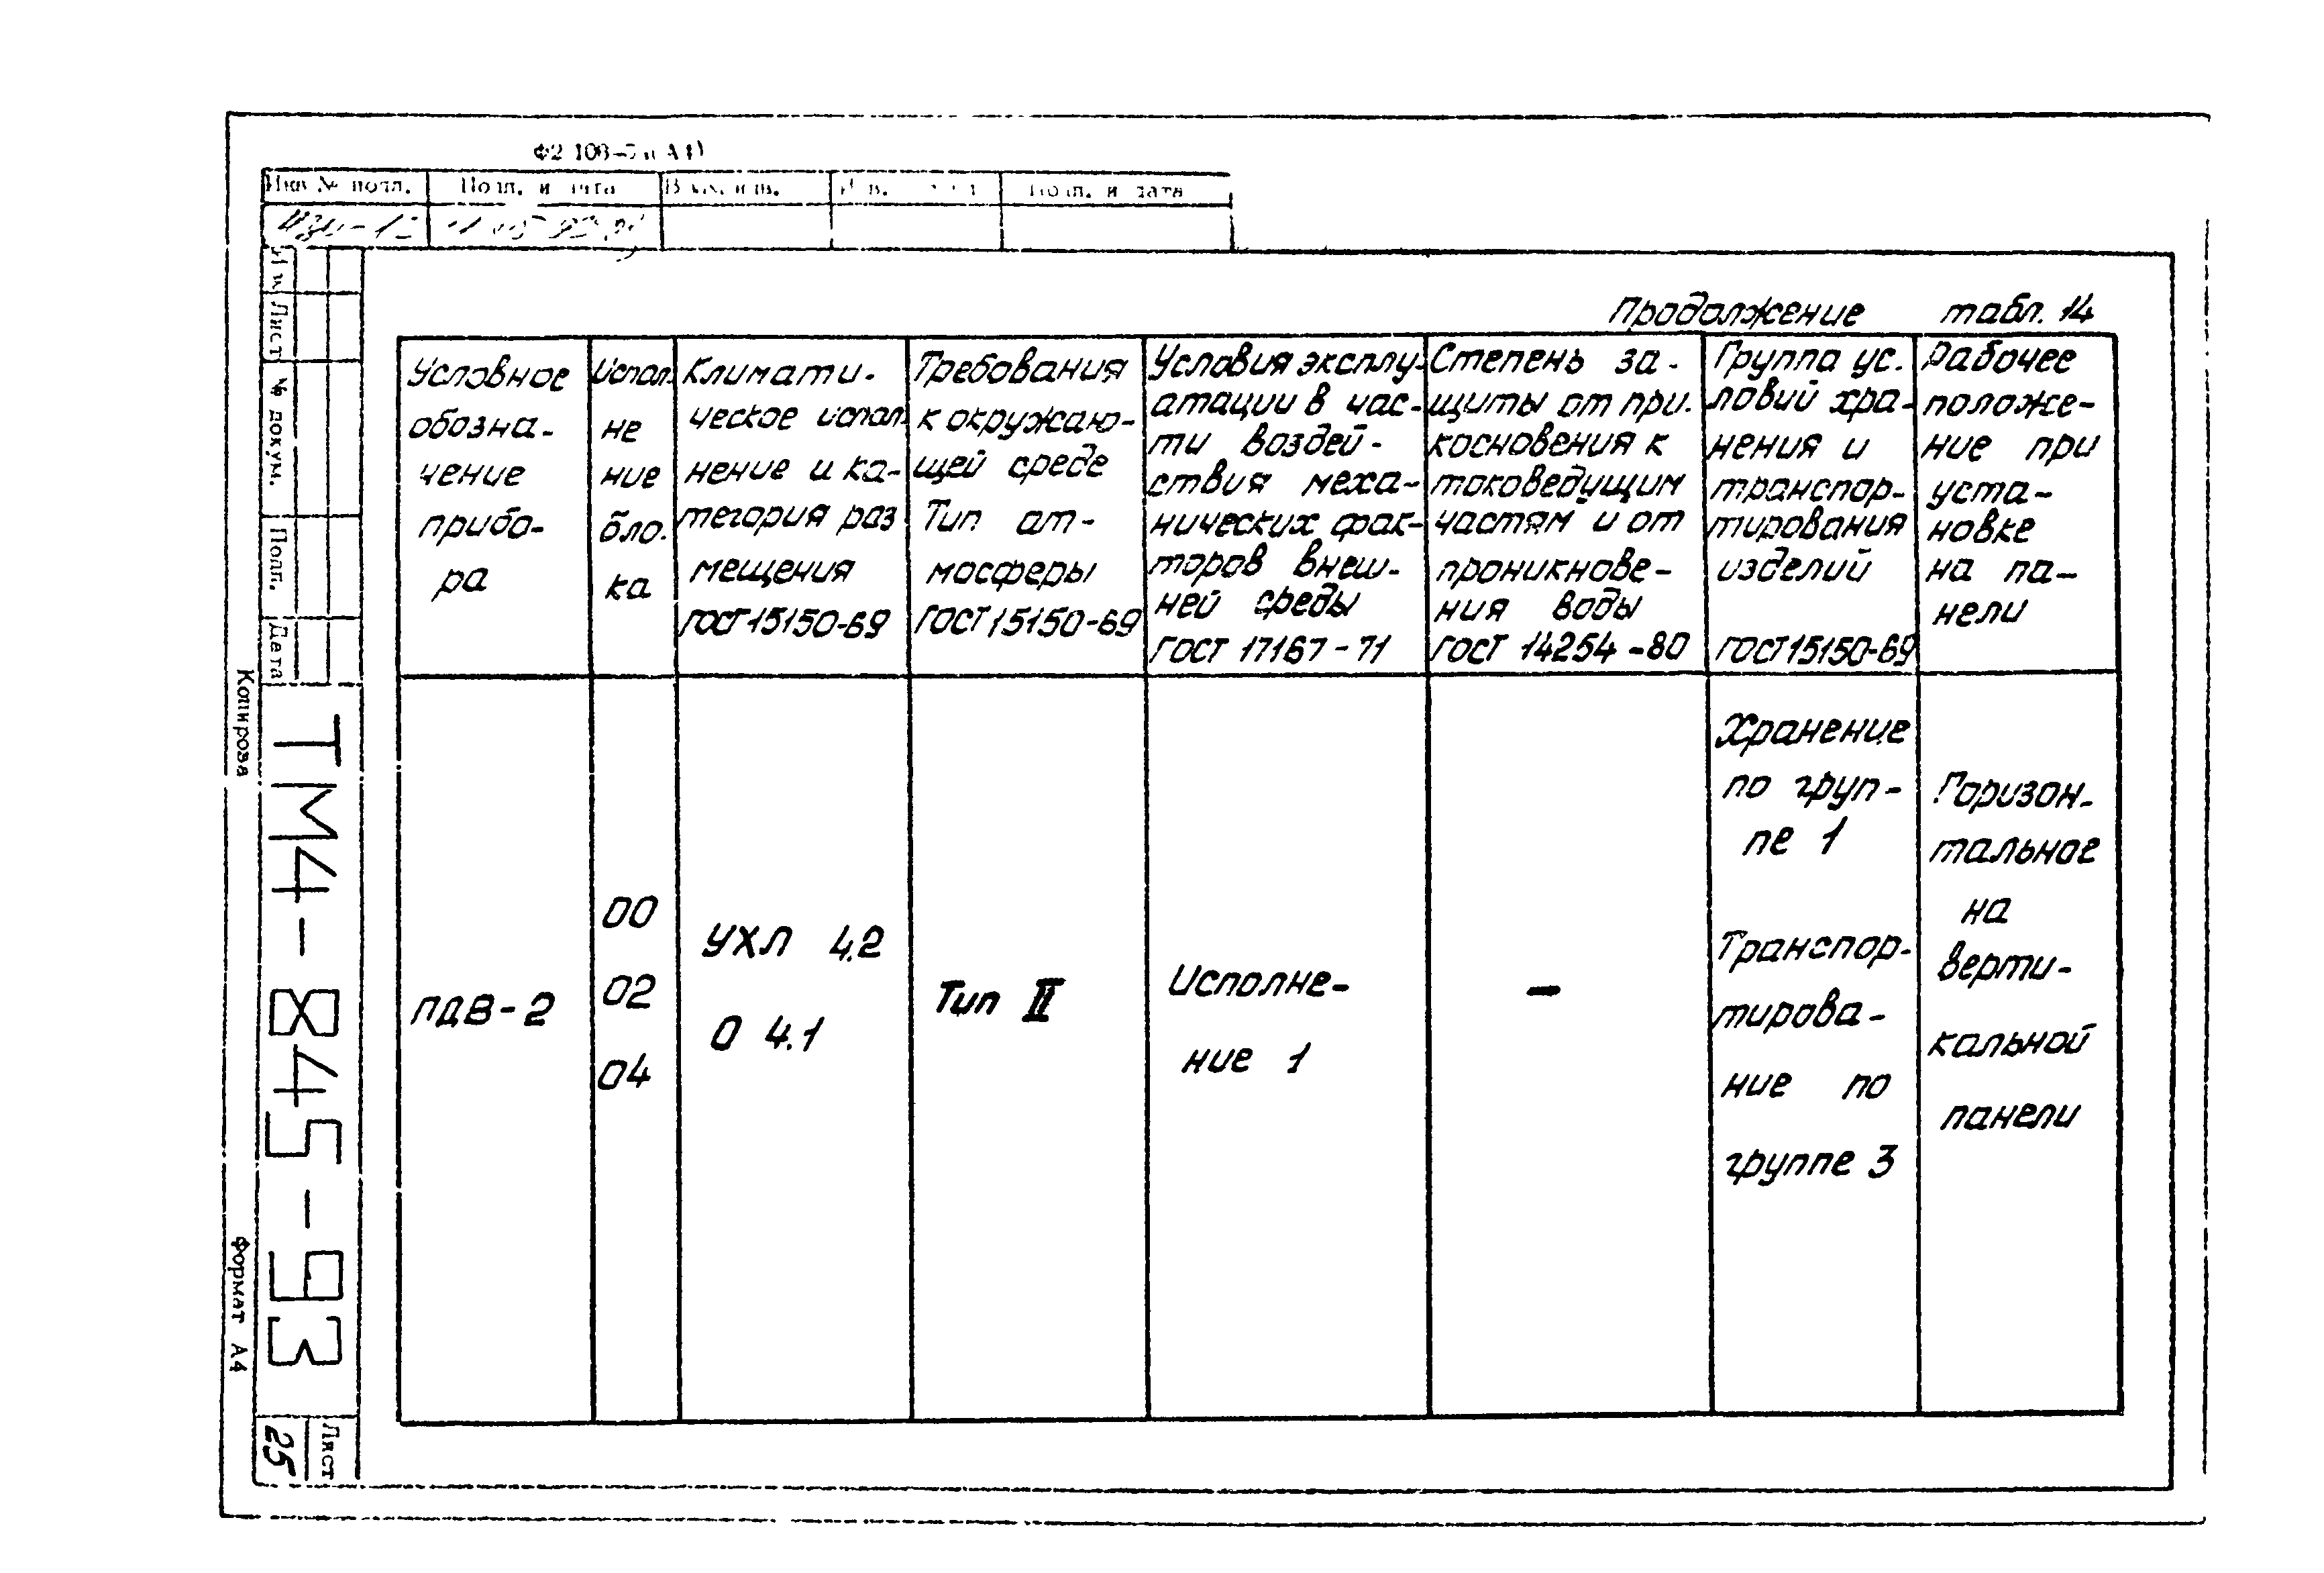 Подп. и дата
Подп. и дата
Лист
№ докум.
Подп.
Дата
Копирова
ТМ4-845-93
Формат А4
Лист
25
Продолжение табл. 14
Условное
обозна-
чение
прибо-
ра
Испол.
не
ние
бло.
ка
Климати-
ческое испол.
нение и ка-
тегория раз
мещения
ГОСТ 15150-69
Требования
к окружаю-
щей среде
Тип ат-
мосферы
ГОСТ 15150-69
Условия эксплу-
атации в час-
ти воздей-
ствия меха-
нических фак-
торов внеш-
ней среды
ГОСТ 17167-71
Степень за-
щиты от при-
косновения к
токоведущим
частям и от
проникнове-
ния воды
ГОСТ 14254-80
Группа ус-
ловий хра-
нения и
транспор-
тирования
изделий
ГОСТ 15150-69
Рабочее
положе-
ние при
уста-
новке
на па-
нели
ПДВ-2
00
02
04
УХЛ 4.2
О 4.1
Тип II
Исполне-
ние 1
-
Хранение
по груп-
пе 1
Транспор-
тирова-
ние по
группе 3
Горизон-
тальное
на
верти-
кальной
панели